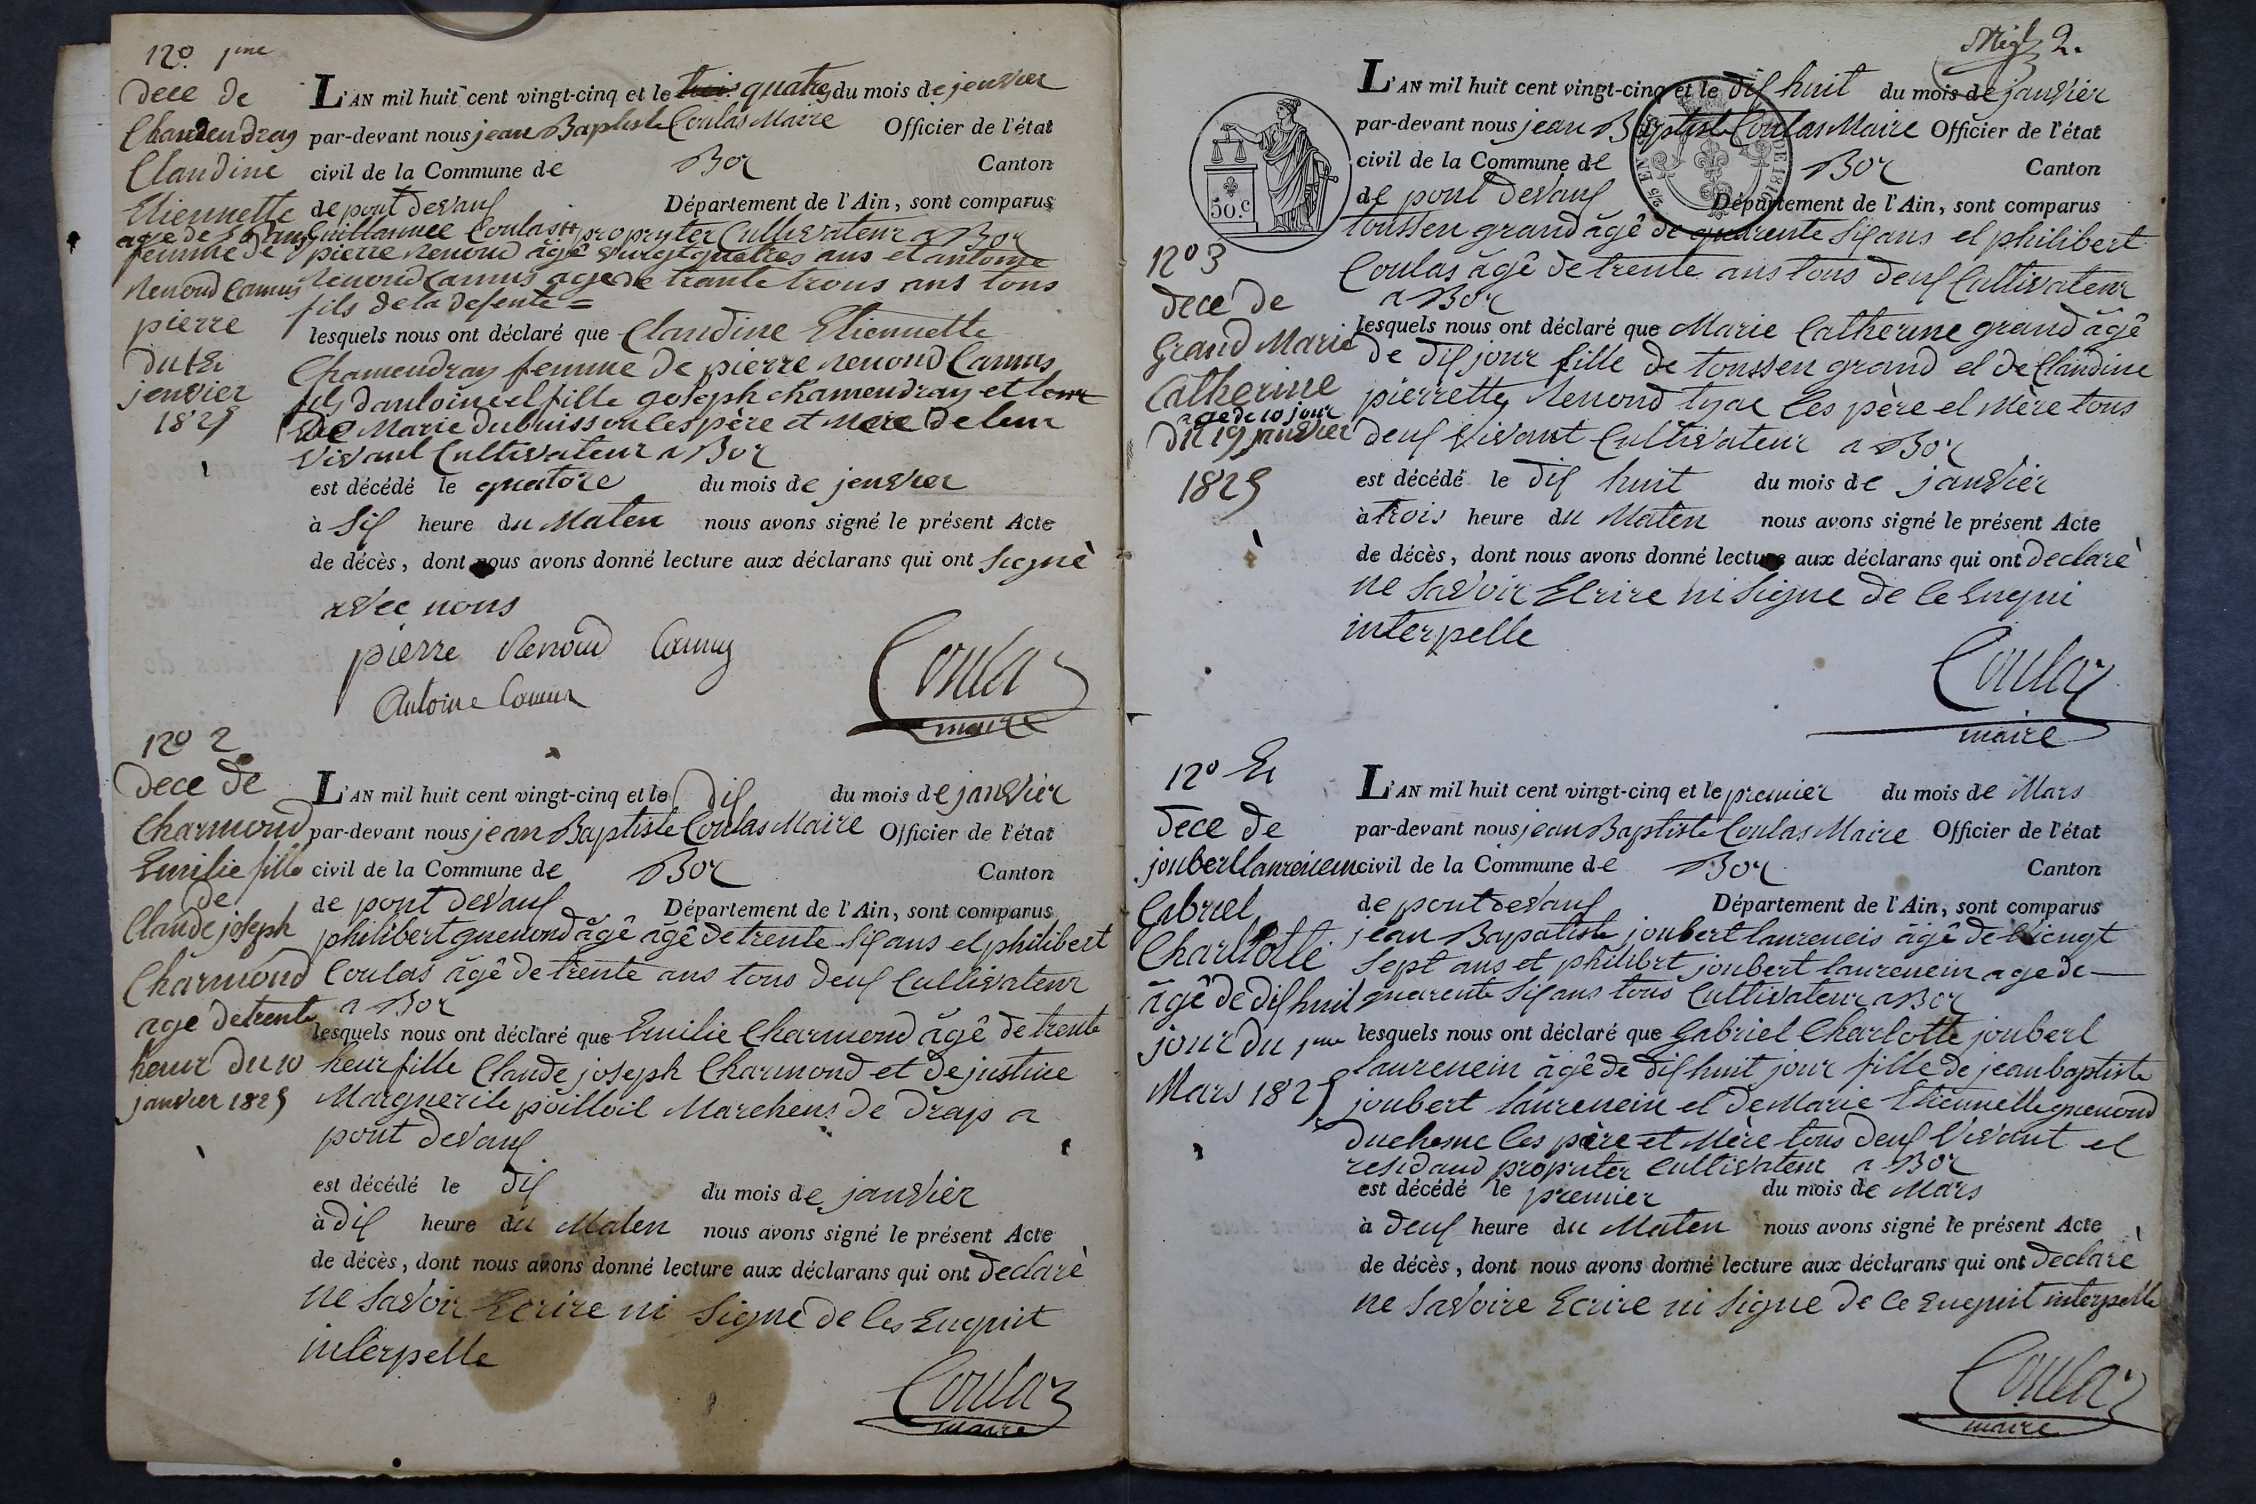 N.º 1me
dece de
Chanendray
Claudine
Etiennette
femme de
Renoud Camus
pierre
du 4
jenvier
1825
L'AN mil huit cent vingt-cinq et le quatre du mois de jenvier
par-devant nous jean Baptiste Coulas Maire Officier de l'état
civil de la Commune de Bor Canton
de pont devaux Département de l'Ain, sont comparus
Coulas propryter Cultivateur a Bor
pierre Renoud âgé vingt quatres ans et antoine
Renoud Camus age de trante trous ans tous
fils de la defente =
lesquels nous ont déclaré que Claudine Etiennette
Chamendray femme de pierre Renoud Camus
fils d'antoine el fille goseph chamendray et
de Marie dubuisson les père et Mere de leur
Vivant Cultivateur a Bor
est décédé le quatore du mois de jenvier
à six heure du Maten nous avons signé le présent Acte
de décès, dont nous avons donné lecture aux déclarans qui ont signè
avec nous
pierre Renoud Camus
Antoine Camus
Coulas
maire
N.º 2
Dece de
Charmond
Emilie fille
de
Claude joseph
Charmond
age de trente
heur du 10
janvier 1825
L'AN mil huit cent vingt-cinq et le dix du mois de janvier
par-devant nous jean Baptiste Coulas Maire Officier de l'état
civil de la Commune de Bor Canton
de pont devaux Département de l'Ain, sont comparus
philibert guenond âgê agê de trente six ans el philibert
Coulas âgê de trente ans tous deux Cultivateur
a Bor
lesquels nous ont déclaré que Emilie Charmond âgê de trente
heur fille Claude joseph Charmond et de justine
Marguerite poilloil Marchens de drap a
pont devaux
est décédé le dix du mois de janvier
à dix heure du Maten nous avons signé le présent Acte
de décès, dont nous avons donné lecture aux déclarans qui ont declarè
ne savoir Ecrire ni signe de les Enquit
interpelle
Coulas
maire
2.
50.c
L'AN mil huit cent vingt-cinq et le dix huit du mois de janvier
par-devant nous jean Baptiste Coulas Maire Officier de l'état
civil de la Commune de Bor Canton
de pont devaux Département de l'Ain, sont comparus
toussen grand âgê de quarente six ans el philibert
Coulas âgê de trente ans tous deux Cultivateur
a Bor
N.º 3
dece de
Grand Marie
Catherine
age de 10 jour
du 19 janvier
1825
lesquels nous ont déclaré que Marie Catherine grand âgê
de dix jour fille de toussen grand el de Claudine
pierrette Renoud les père el Mère tous
deux Vivant Cultivateur a Bor
est décédé le dix huit du mois de janvier
à trois heure du Maten nous avons signé le présent Acte
de décès, dont nous avons donné lecture aux déclarans qui ont declarè
ne savoir Ecrire ni signe de ce Enqui
interpelle
Coulas
maire
N.º 4
Dece de
joubert laurencin
Gabriel
Charllotte
âgê de dix huit
jour du 1me
Mars 1825
L'AN mil huit cent vingt-cinq et le premier du mois de Mars
par-devant nous jean Baptiste Coulas Maire Officier de l'état
civil de la Commune de Bor Canton
de pont devaux Département de l'Ain, sont comparus
jean Bapatiste joubert laurencis âgê de viengt
sept ans et philibrt joubert laurencin age de
quarente six ans tous Cultivateur a Bor
lesquels nous ont déclaré que Gabriel Charlotte joubert
laurencin âgê de dix huit jour fille de jean baptiste
joubert laurencin el de Marie Etiennette guenond
duchesne les père et Mère tous deux Vivant el
residand propriter Cultivateur a Bor
est décédé le premier du mois de Mars
à deux heure du Maten nous avons signé le présent Acte
de décès, dont nous avons donné lecture aux déclarans qui ont declarè
ne savoire Ecrire ni signe de ce Enquit interpelle
Coulas
maire